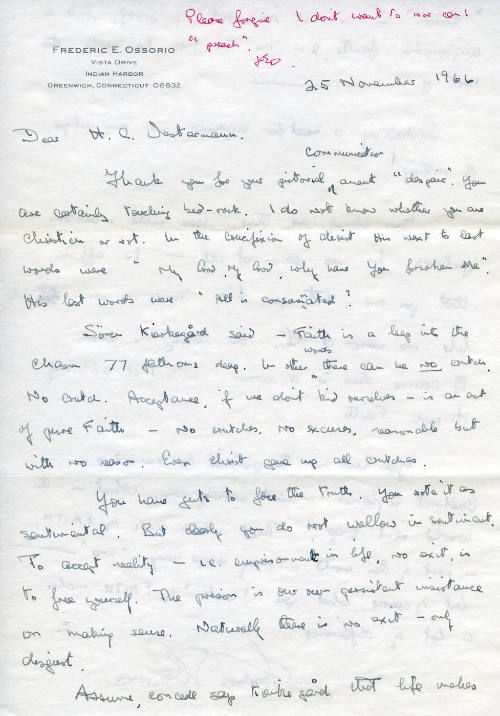 Please forgive. I don't want to nor can I
"preach".
FEO
FREDERIC E. OSSORIO
VISTA DRIVE
INDIAN HARBOR
GREENWICH, CONNECTICUT 06832
25 November 1966
Dear H. C. Westermann.
communication!
Thank you for your pictorial anent "despair". You
are certainly touching bed-rock. I do not know whether you are
Christian or not. In the crucifixion of Christ His next to last
words were "My God, My God, why have You forsaken Me".
His last words were "All is consummated".
Sören Kierkegård said – Faith is a leap into the
chasm 77 fathoms deep. In other words there can be no crutch.
No crutch. Acceptance, if we don't kid ourselves – is an act
of pure Faith – No crutches, No excuses, reasonable but
with no reason. Even Christ gave up all crutches.
You have guts to face the truth. You note it as
sentimental. But clearly you do not wallow in sentiment.
To accept reality – i.e. imprisonment in life, no exit, is
to free yourself. The prison is our own persistent insistence
on making sense. Naturally there is no exit – only
disgust.
Assume, concede says Kierkegård that life makes